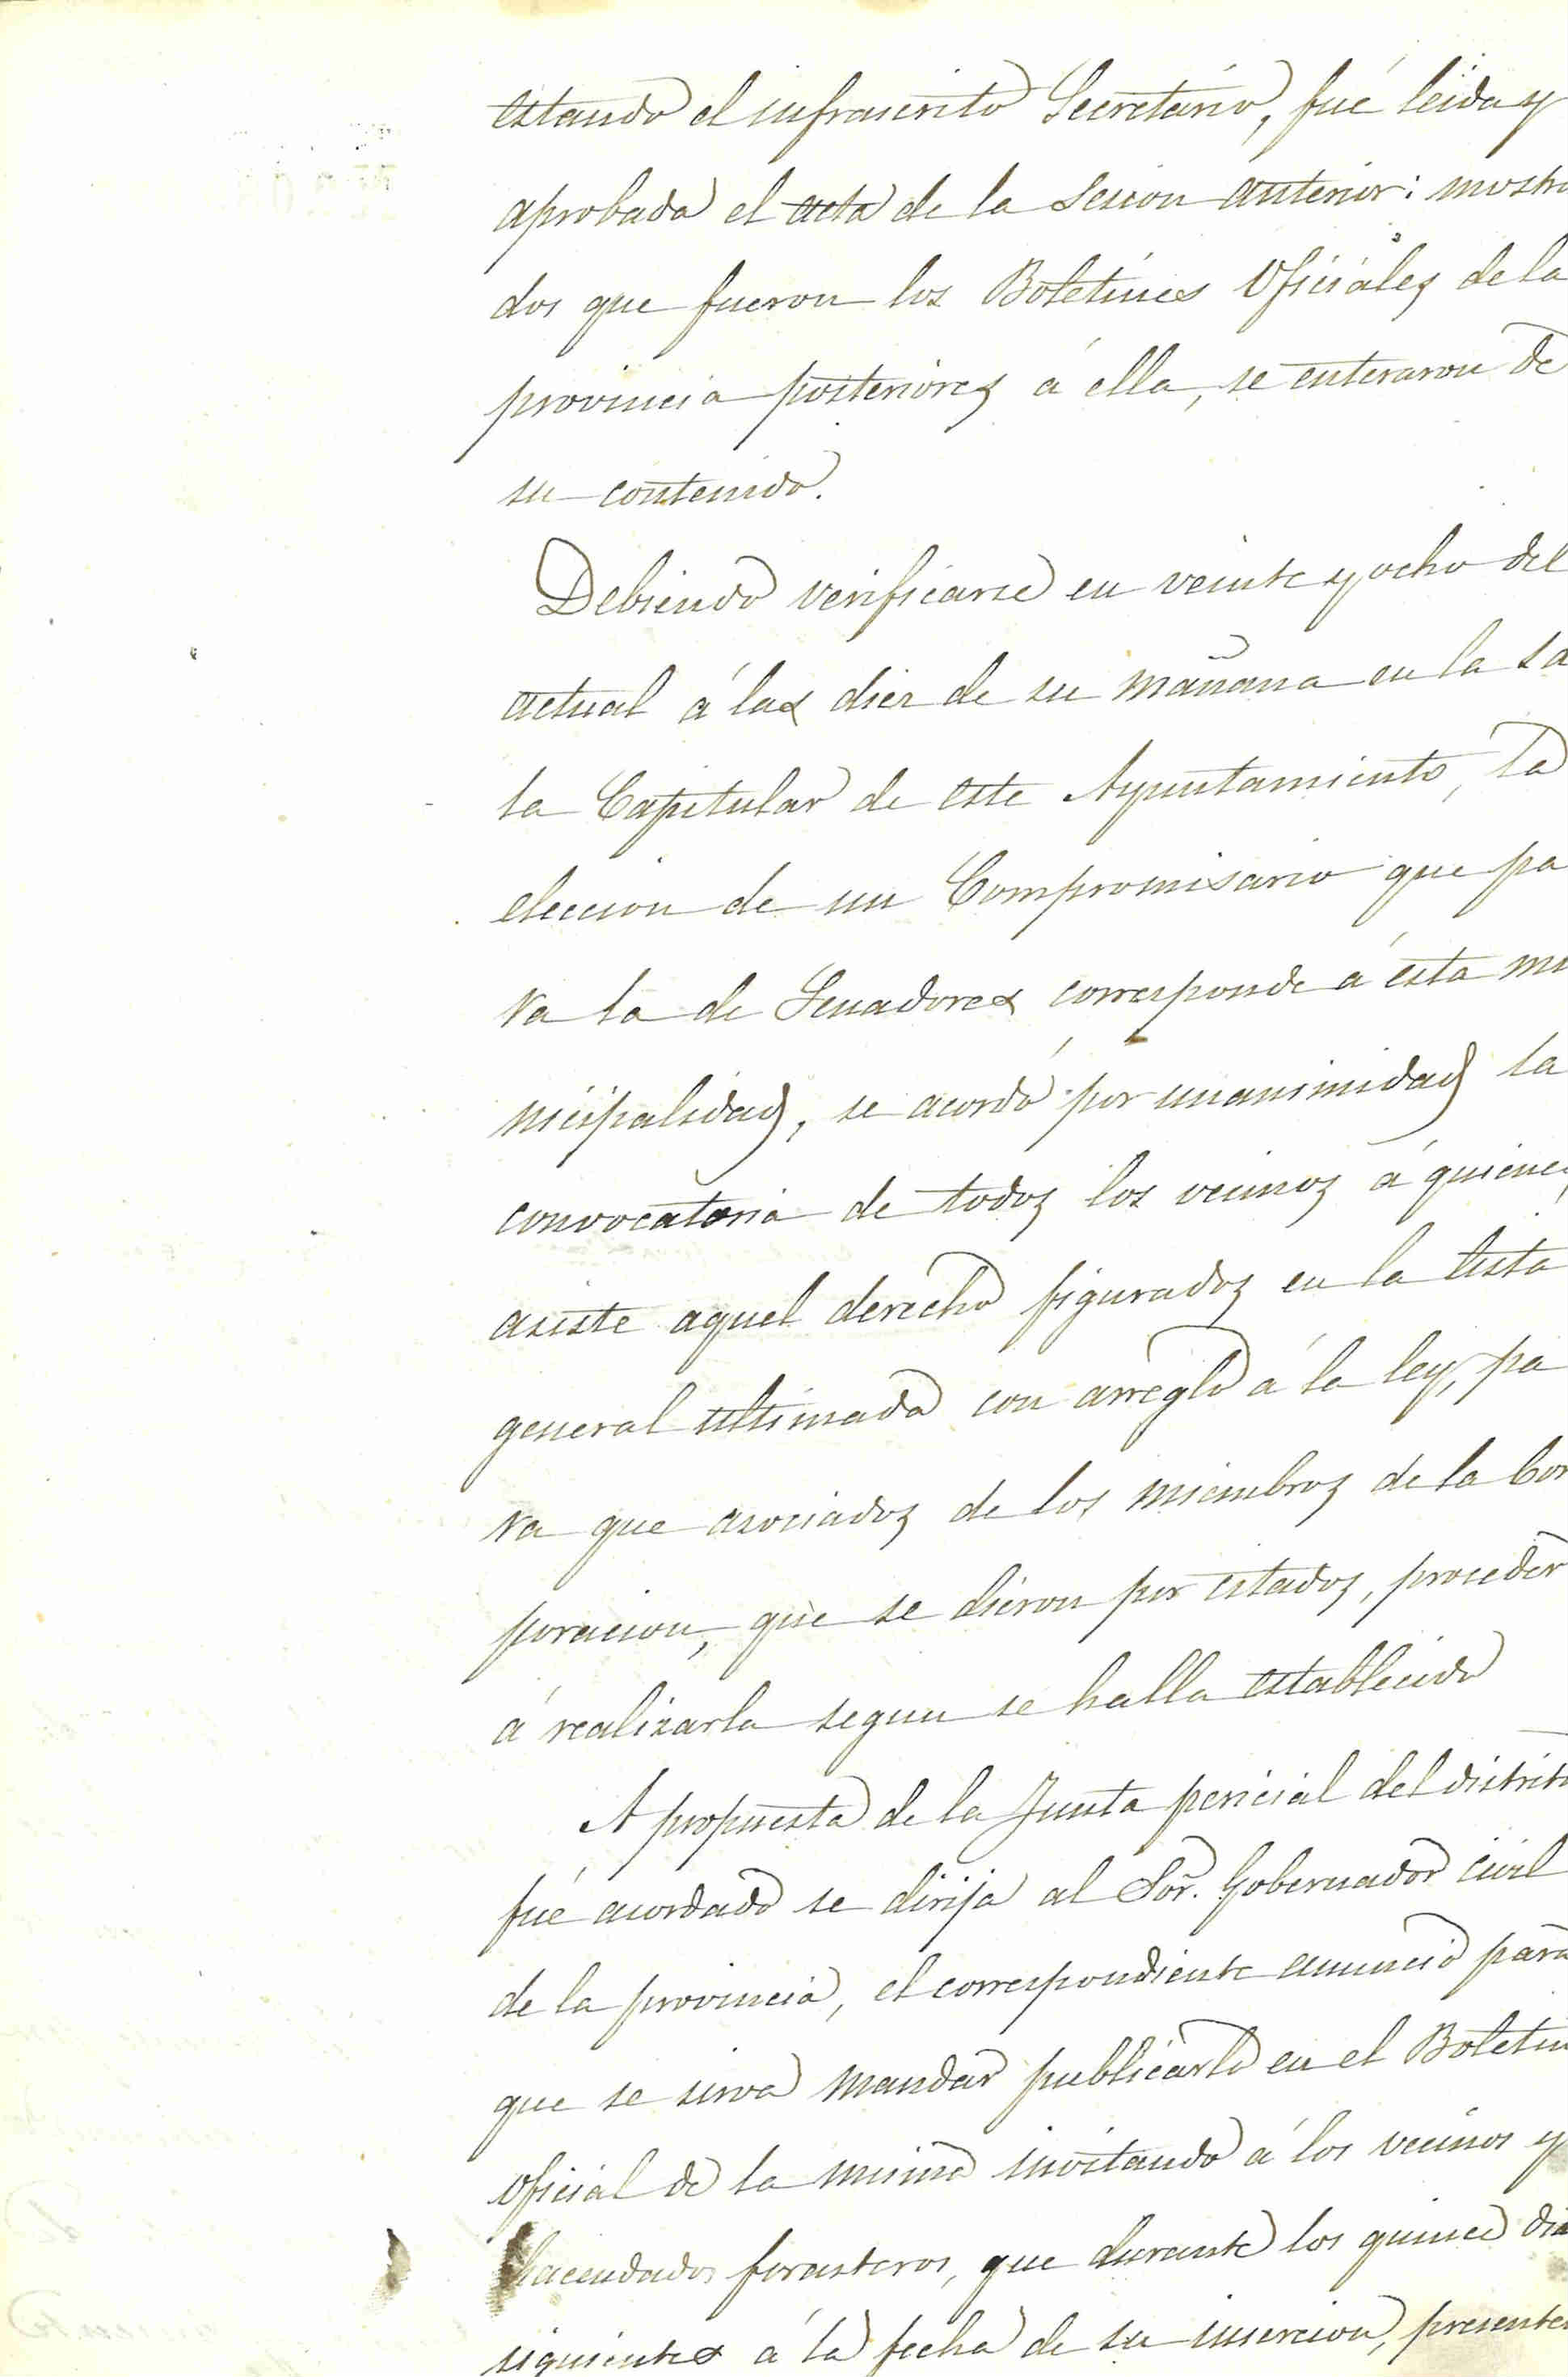 estando el infrascrito Secretario, fué leida y
aprobada el acta de la sesion anterior: mostra
dos que fueron los Boletines Oficiales de la
provincia posteriores á ella, se enteraron de
su contenido.
Debiendo verificarse en veinte y ocho del
actual á las diez de su mañana en la sa
la Capitular de este Ayuntamiento, la
eleccion de un Compromisario que pa
ra la de Senadores corresponde á esta mu
nicipalidad, se acordó por unanimidad la
convocatoria de todos los vecinos á quienes
asiste aquel derecho figurados en la lista
general ultimada con arreglo á la ley, pa
ra que asociados de los miembros de la Cor
poracion, que se dieron por citados, proceder
á realizarla segun se halla establecido
A propuesta de la Junta pericial del distrito
fué acordado se dirija al Sor. Gobernador civil
de la provincia, el correspondiente anuncio para
que se sirva mandar publicarlo en el Boletin
oficial de la misma invitando á los vecinos y
hacendados forasteros, que durante los quince dia
siguientes á la fecha de su insercion, presenten